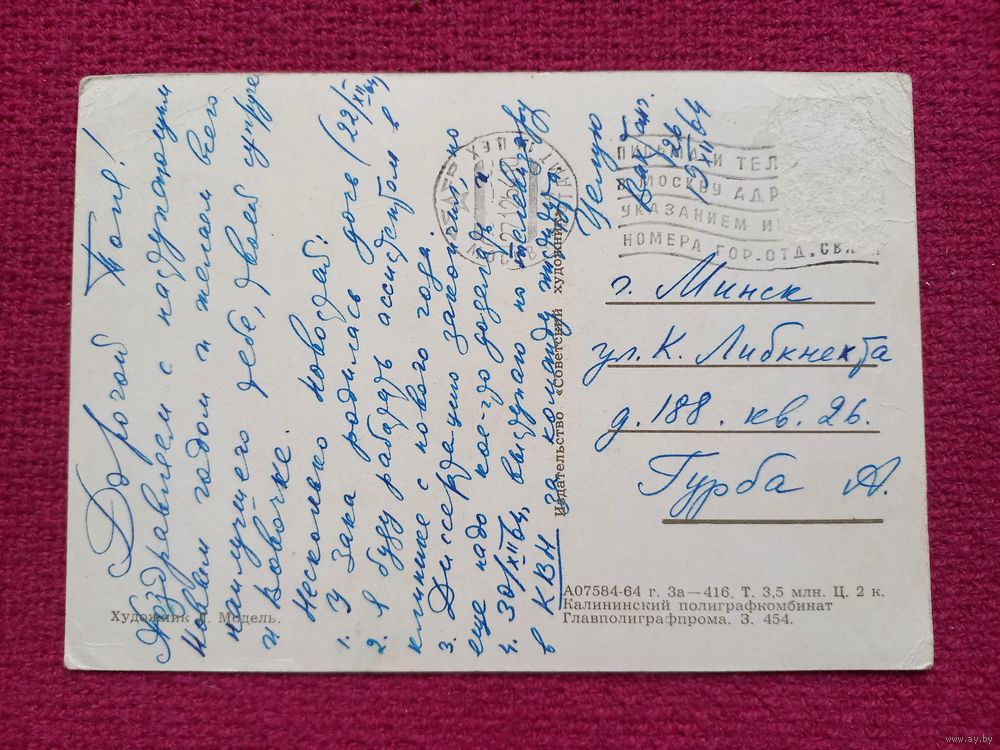 Дорогой Толя!
Поздравляем с наступающим
Новым годом и желаем всего
наилучшего тебе, твоей супруге
и Вовочке.
Несколько новостей:
1. У Зака родилась дочь (22/XII 64)
2. Я буду работать ассистентом в
клинике с нового года.
3. Диссертацию закончил, но
еще надо кое-что доделать
4. 30/XII 64, выступаю по телевизору
в КВН за команду
Целую
26/XII 64
ПИСЬМА И ТЕЛ
В МОСКВУ АДР
УКАЗАНИЕМ И
НОМЕРА ГОР.ОТД.СВЯ
г. Минск
ул. К. Либкнехта
д. 188. кв. 26.
Гурба А.
Издательство «Советский художник»
Художник Модель.
А07584-64 г. За—416. Т. 3,5 млн. Ц. 2 к.
Калининский полиграфкомбинат
Главполиграфпрома. З. 454.
www.ay.by